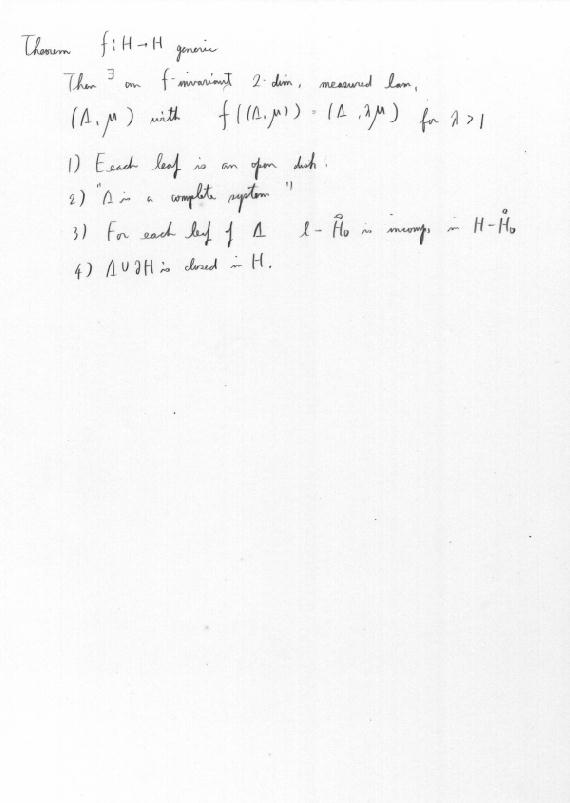 Theorem f : H → H generic
Then ∃ an f-invariant 2-dim, measured lam,
(Λ, μ) with f((Λ, μ)) = (Λ, λμ) for λ > 1
1) Eeach leaf is an open disk.
2) "Λ is a complete system"
3) For each leaf of Λ l - H̊₀ is incomp, in H - H̊₀
4) Λ ∪ ∂H is closed in H.